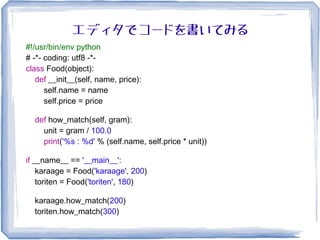 エディタでコードを書いてみる
#!/usr/bin/env python
# -*- coding: utf8 -*-
class Food(object):
    def __init__(self, name, price):
        self.name = name
        self.price = price

    def how_match(self, gram):
        unit = gram / 100.0
        print('%s : %d' % (self.name, self.price * unit))

if __name__ == '__main__':
    karaage = Food('karaage', 200)
    toriten = Food('toriten', 180)

    karaage.how_match(200)
    toriten.how_match(300)